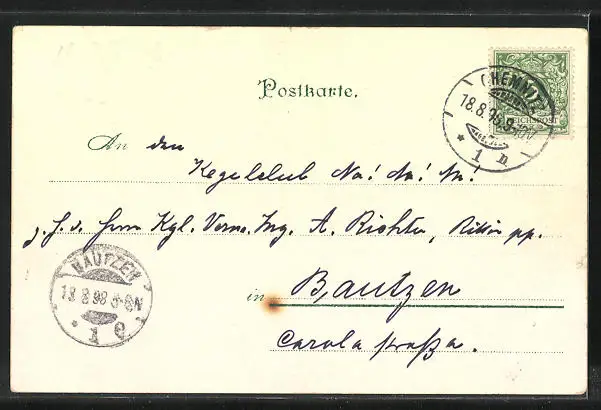 Postkarte.
CHEMNITZ
18.8.98.9-10V
* 1 n
REICHSPOST
An den
Kegelclub Na! Na! Na!
z. H. d. Herrn Kgl. Verm. Ing. A. Richter, Ritter pp.
BAUTZEN
18 8 98 8-9N
* 1 e
in Bautzen
Carolastraße.